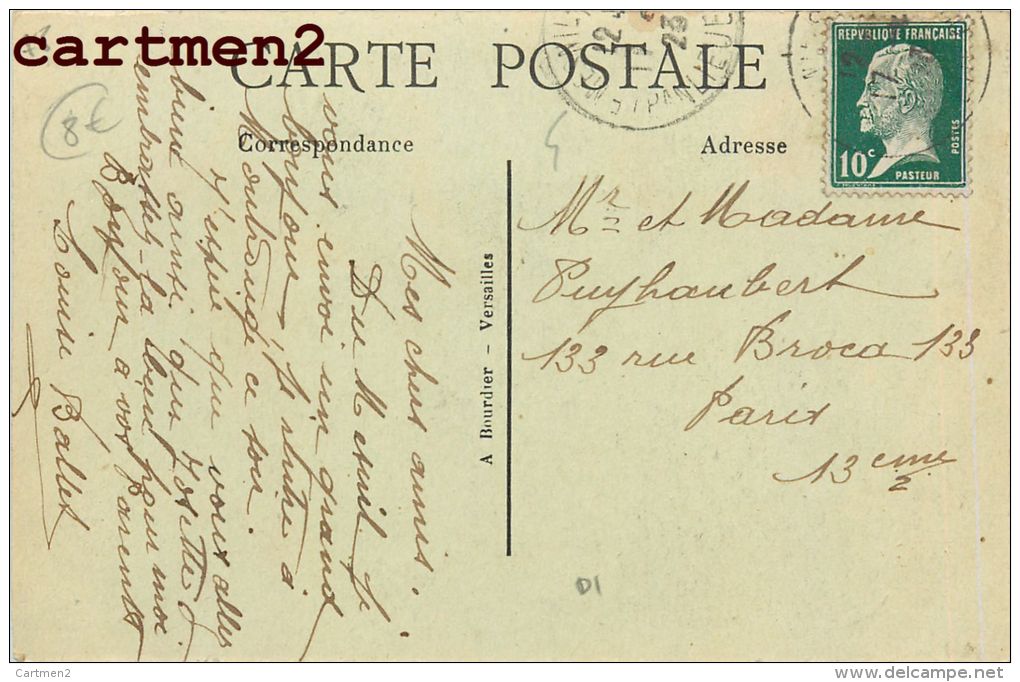 cartmen2
CARTE POSTALE
8€
Correspondance
Adresse
RÉPUBLIQUE FRANÇAISE
10c
POSTES
PASTEUR
Mes chers amis.
Du Mesnil je
vous envoi un grand
bonjour je rentre à
Montrouge ce soir.
J'espère que vous allez
bien ainsi que
embrassez-la bien pour moi
Bonjour à vos parents
Louise Ballet
A Bourdier - Versailles
Mr et Madame
Puyhaubert
133 rue Broca 133
Paris
13eme
D1
Cartmen2
www.delcampe.net